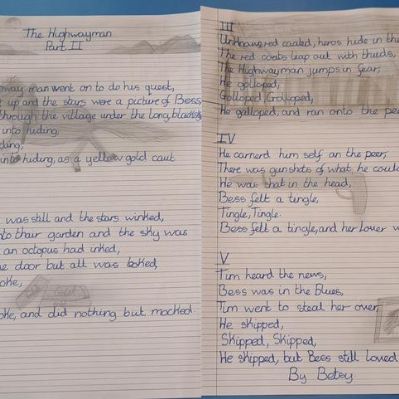 The Highwayman
Part II
way man went on to do his quest,
up and the stars were a picture of Bess,
through the village under the long, black
into hiding,
ding,
into hiding, as a yellow gold
was still and the stars winked,
nto thair garden and the sky was
an octopus had inked,
e door but all was locked,
oke,
oke, and did nothing but mocked
III
Unknown red coated, heros hide in the
The red coats leap out with thuds,
The Highwayman jumps in fear,
He golloped,
Golloped, Golloped,
He golloped, and ran onto the pe
IV
He cornerd him self on the peer,
There was gunshots of what he could
He was shot in the head,
Bess felt a tingle,
Tingle, Tingle.
Bess felt a tingle, and her lover w
V
Tim heard the news,
Bess was in the Blues,
Tim went to steal her over,
He skipped,
Skipped, Skipped,
He skipped, but Bess still loved
By Betsy